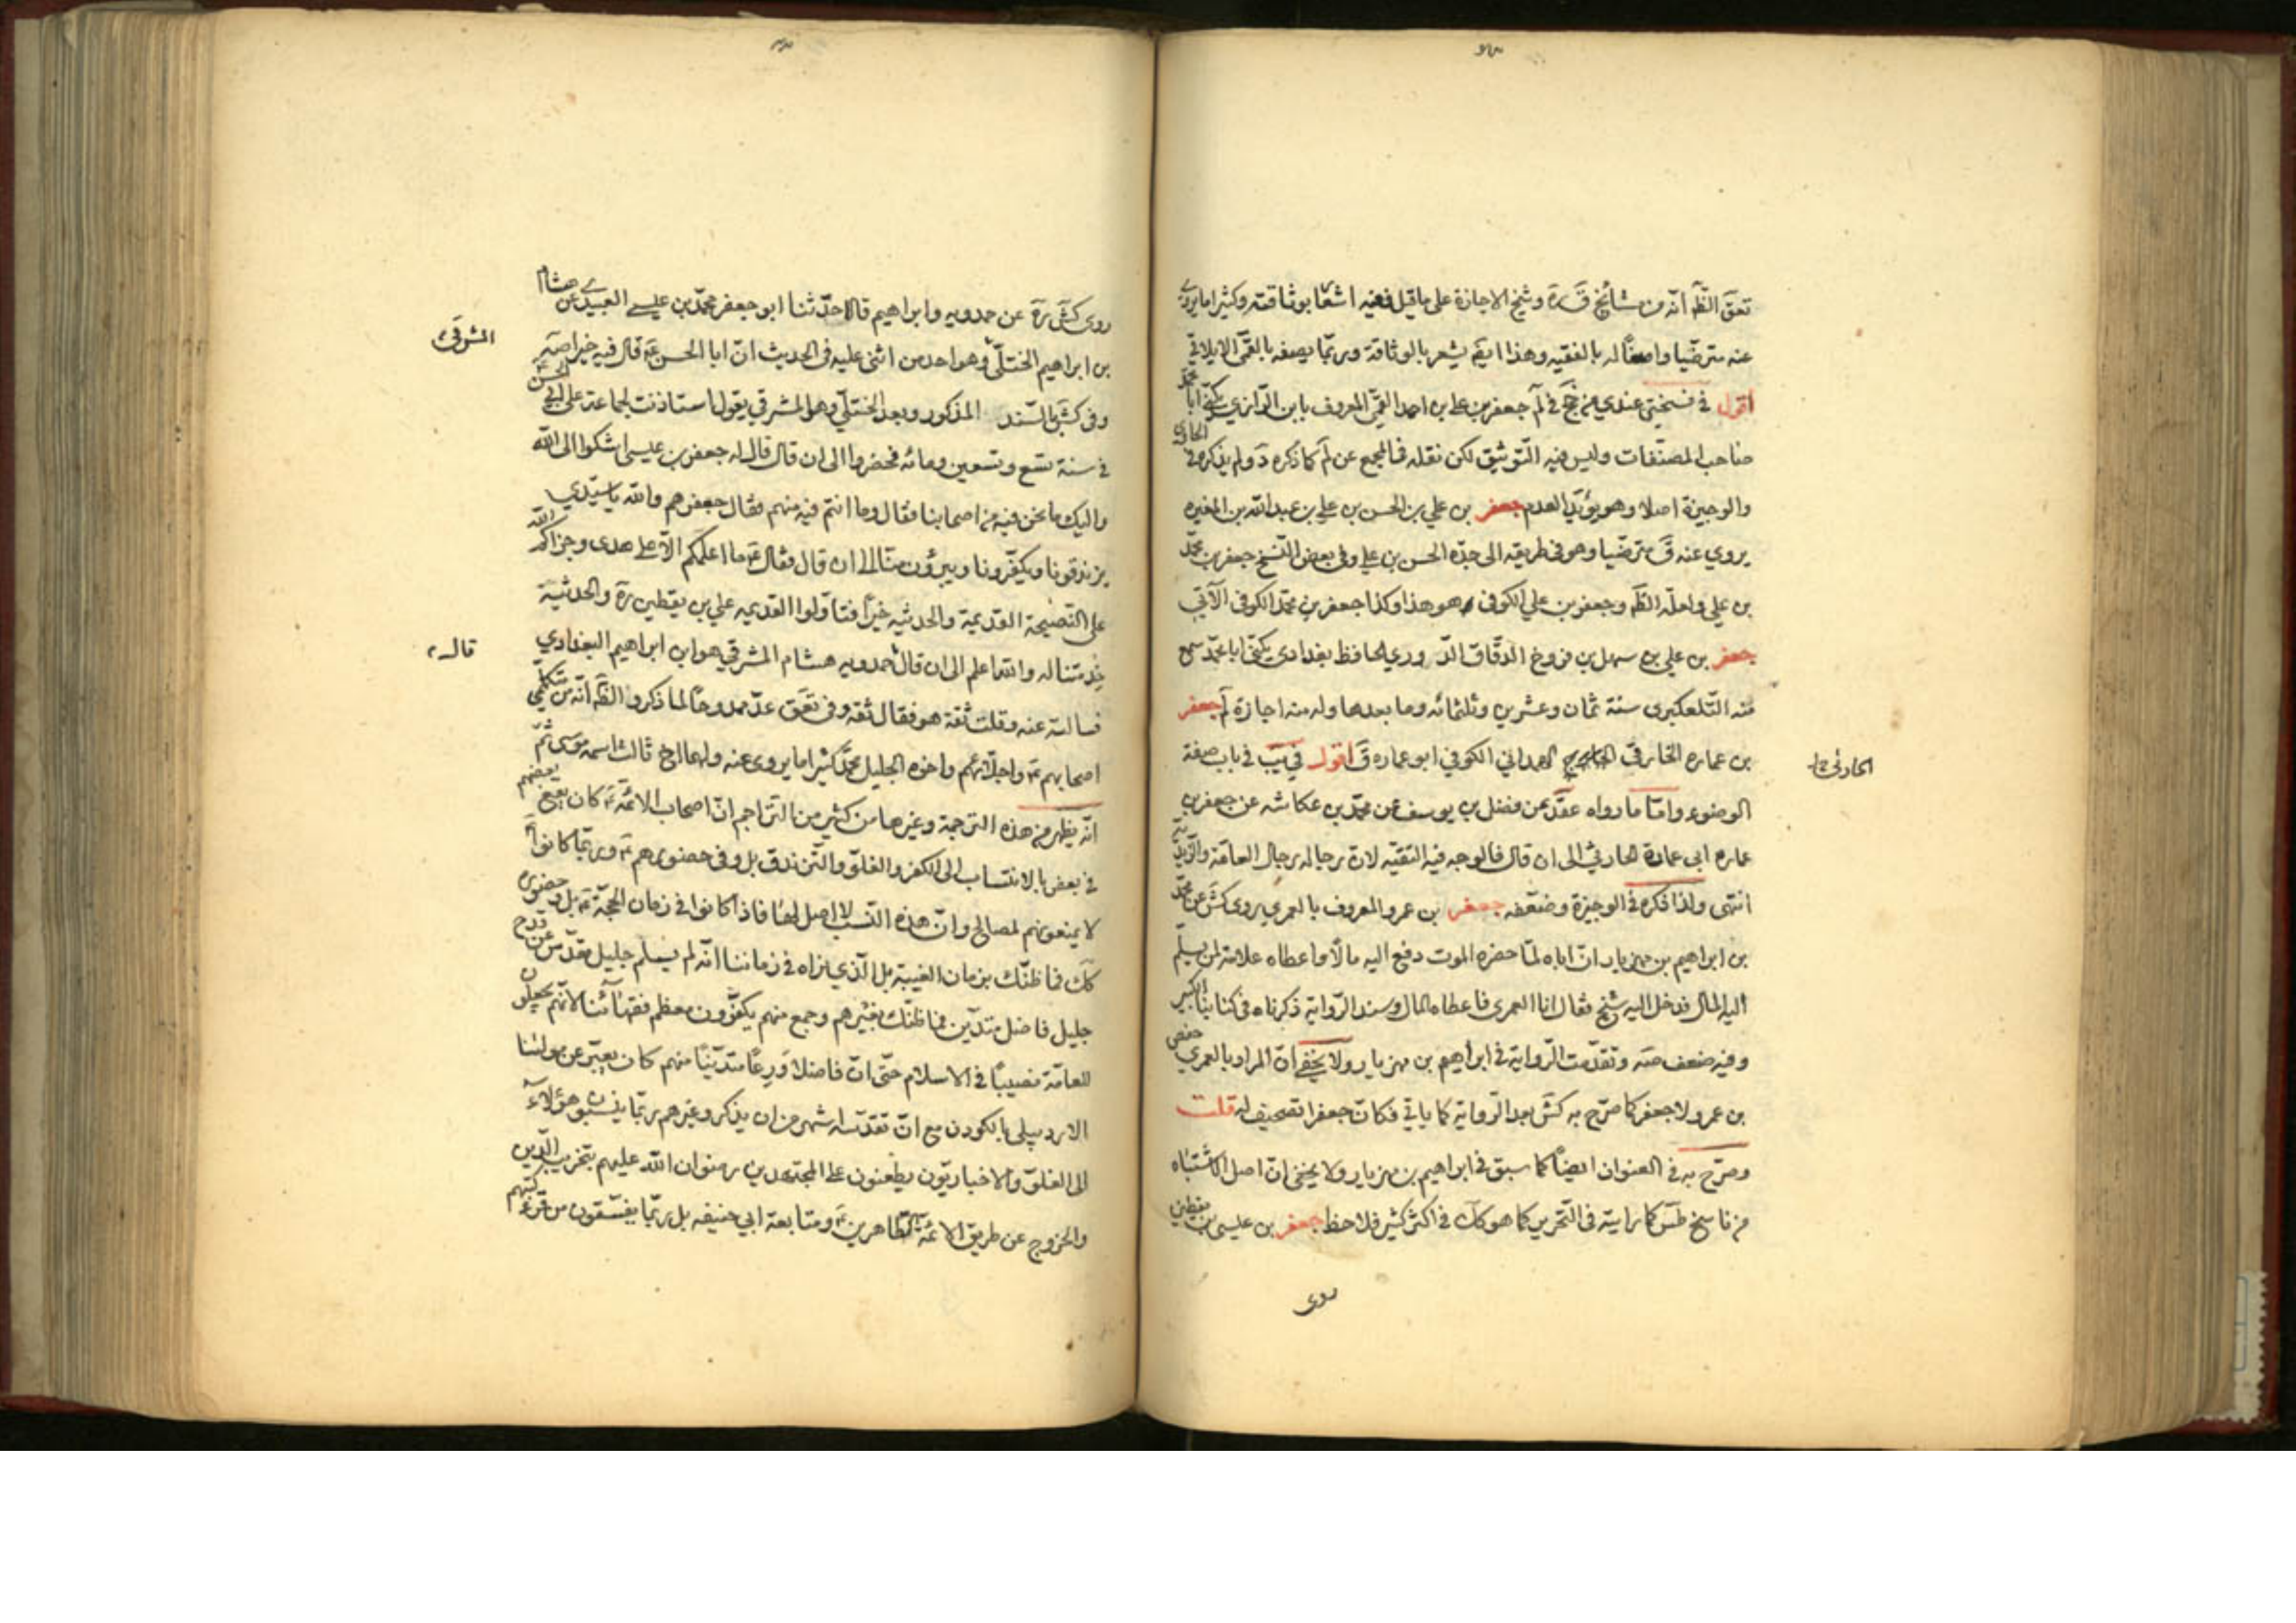 تعق الظ انه من مشائخ ق ره وشيخ الاجازة على ما قيل ففيه اشعار بوثاقته وكثيرا ما يروي
عنه مترضيا واصفا له بالفقيه وهذا ايض يشعر بالوثاقة وربما يصفه بالقمي الايلاقي
اقول في نسختي عندي من جخ في لم جعفر بن علي بن احمد القمي المعروف بابن الرازي يكنى ابا محمد
صاحب المصنفات وليس فيه التوثيق لكن نقله في المجمع عن لم كما ذكره د ولم يذكره في الحاوي
والوجيزة اصلا وهو يؤيد العدم جعفر بن علي بن الحسن بن علي بن عبد الله بن المغيره
يروي عنه ق مترضيا وهو في طريقه الى جده الحسن بن علي وفي بعض النسخ جعفر بن محمد
بن علي ولعله الظ وجعفر بن علي الكوفي هو هذا وكذا جعفر بن محمد الكوفي الآتي
جعفر بن علي بن سهل بن فروخ الدقاق الدوري الحافظ بغدادي يكنى ابا محمد سمع
منه التلعكبري سنة ثمان وعشرين وثلثمائه وما بعدها وله منه اجازة لم جعفر
بن عماره الخارقي الهمداني الكوفي ابو عماره ق اقول في يب في باب صفة
الحارثي خ ل
الوضوء واما ما رواه عقد عن فضل بن يوسف عن محمد بن عكاشه عن جعفر بن
عماره ابي عمارة الحارثي الى ان قال فالوجه فيه التقيه لان رجاله رجال العامة والزيدية
انتهى ولذا ذكره في الوجيزة وضعفه جعفر بن عمرو المعروف بالعمري روى كش عن محمد
بن ابراهيم بن مهزيار ان اباه لما حضره الموت دفع اليه مالا واعطاه علامة لمن يسلم
اليه المال فدخل اليه شيخ فقال انا العمري فاعطاه المال وسند الرواية ذكرناه في كتابنا الكبير
وفيه ضعف صه وتقدمت الرواية في ابراهيم بن مهزيار ولا يخفى ان المراد بالعمري حفص
بن عمرو لا جعفر كما صرح به كش بعد الرواية كما ياتي فكان جعفرا تصحيف له قلت
وصرح به في العنوان ايضا كما سبق في ابراهيم بن مهزيار ولا يخفى ان اصل الاشتباه
من ناسخ طس كما رايته في التحرير كما هو كك في اكثر كثير فلاحظ جعفر بن عيسى بن يقطين
روى
روى كش ره عن حمدويه وابراهيم قالا حدثنا ابو جعفر محمد بن عيسى العبيدي عن هشام
بن ابراهيم الختلي وهو احد من اثنى عليه في الحديث ان ابا الحسن ع قال فيه خيرا صه
المشرقي
وفي كش بالسند المذكور وبعد الختلي وهو المشرقي يقول استاذنت لجماعة على ابي الحسن
في سنة تسع وتسعين ومائه فحضروا الى ان قال قال له جعفر بن عيسى اشكوا الى الله
واليك ما نحن فيه من اصحابنا فقال وما انتم فيه منهم فقال جعفر هم والله يا سيدي
يزندقونا ويكفرونا ويبرؤن منا الى ان قال فقال ع ما اعلمكم الا على هدى وجزاكم الله
على النصيحة القديمة والحديثيه خيرا فتاولوا القديمه علي بن يقطين ره والحديثية
خدمتنا له والله اعلم الى ان قال حمدويه هشام المشرقي هو ابن ابراهيم البغدادي
قال
فسالته عنه وقلت ثقة هو فقال ثقه وفي تعق عد ممدوحا لما ذكر والظ انه من متكلمي
اصحابهم ع واجلائهم واخوه الجليل محمد كثيرا ما يروي عنه ولهما اخ ثالث اسمه موسى ثم
انه يظهر من هذه الترجمة وغيرها من كثير من التراجم ان اصحاب الائمة ع كان يقع بعضهم
في بعض بالانتساب الى الكفر والغلو والتزندق بل وفي حضورهم ع وربما كانوا
لا يمنعونهم لمصالح وان هذه النسب لا اصل لها فاذا كانوا في زمان الحجة ع بل وحضوره
كك فما ظنك بزمان الغيبة بل الذي نراه في زماننا انه لم يسلم جليل مقدس عن قدح
جليل فاضل متدين فما ظنك بغيرهم وجمع منهم يكفرون معظم فقهائنا لانهم يجعلون
للعامة نصيبا في الاسلام حتى ان فاضلا ورعا متدينا منهم كان يعبر عن مولانا
الاردبيلي بالكودن مع ان تقدسه اشهر من ان يذكر وغيرهم ربما ينسبون هؤلاء
الى الغلو والاخباريون يطعنون على المجتهدين رضوان الله عليهم بتخريب الدين
والخروج عن طريق الائمة الطاهرين ع ومتابعة ابي حنيفه بل ربما يفسقون من قرء كتبهم